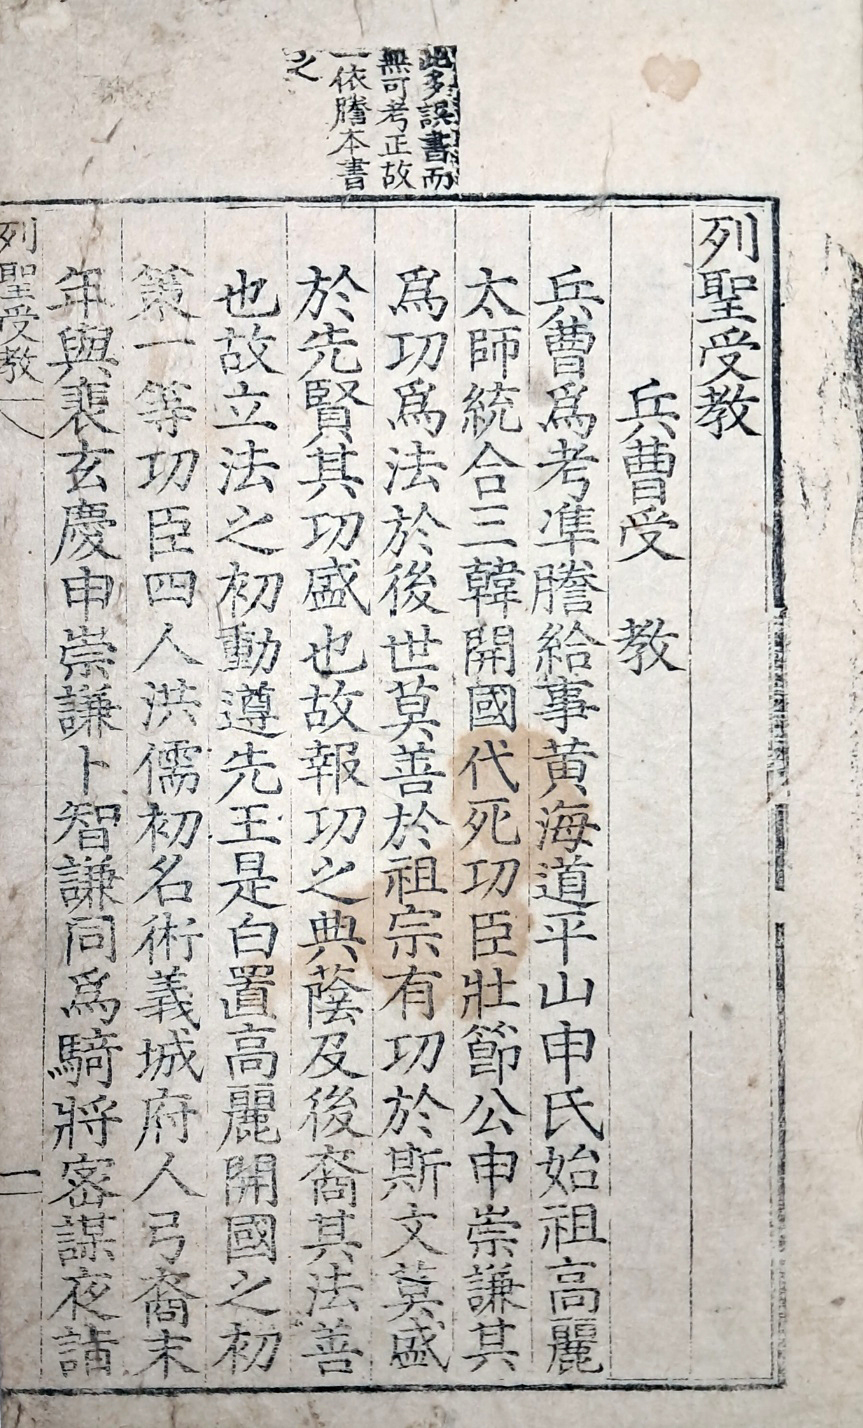 此多誤書而
無可考正故
一依謄本書
之
列聖受教
兵曹受　教
兵曹爲考準謄給事黃海道平山申氏始祖高麗
太師統合三韓開國代死功臣壯節公申崇謙其
爲功爲法於後世莫善於祖宗有功於斯文莫盛
於先賢其功盛也故報功之典蔭及後裔其法善
也故立法之初動遵先王是白置高麗開國之初
策一等功臣四人洪儒初名術義城府人弓裔末
年與裴玄慶申崇謙卜智謙同爲騎將密謀夜詣
列聖受教
一